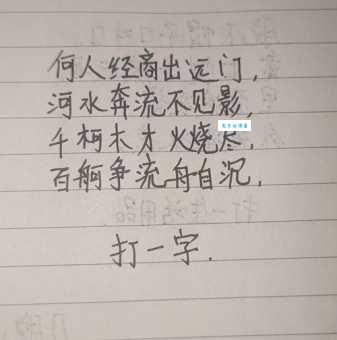 何人经商出远门,
河水奔流不见影,
千柯木才火烧尽,
百舸争流舟自沉,
打一字.